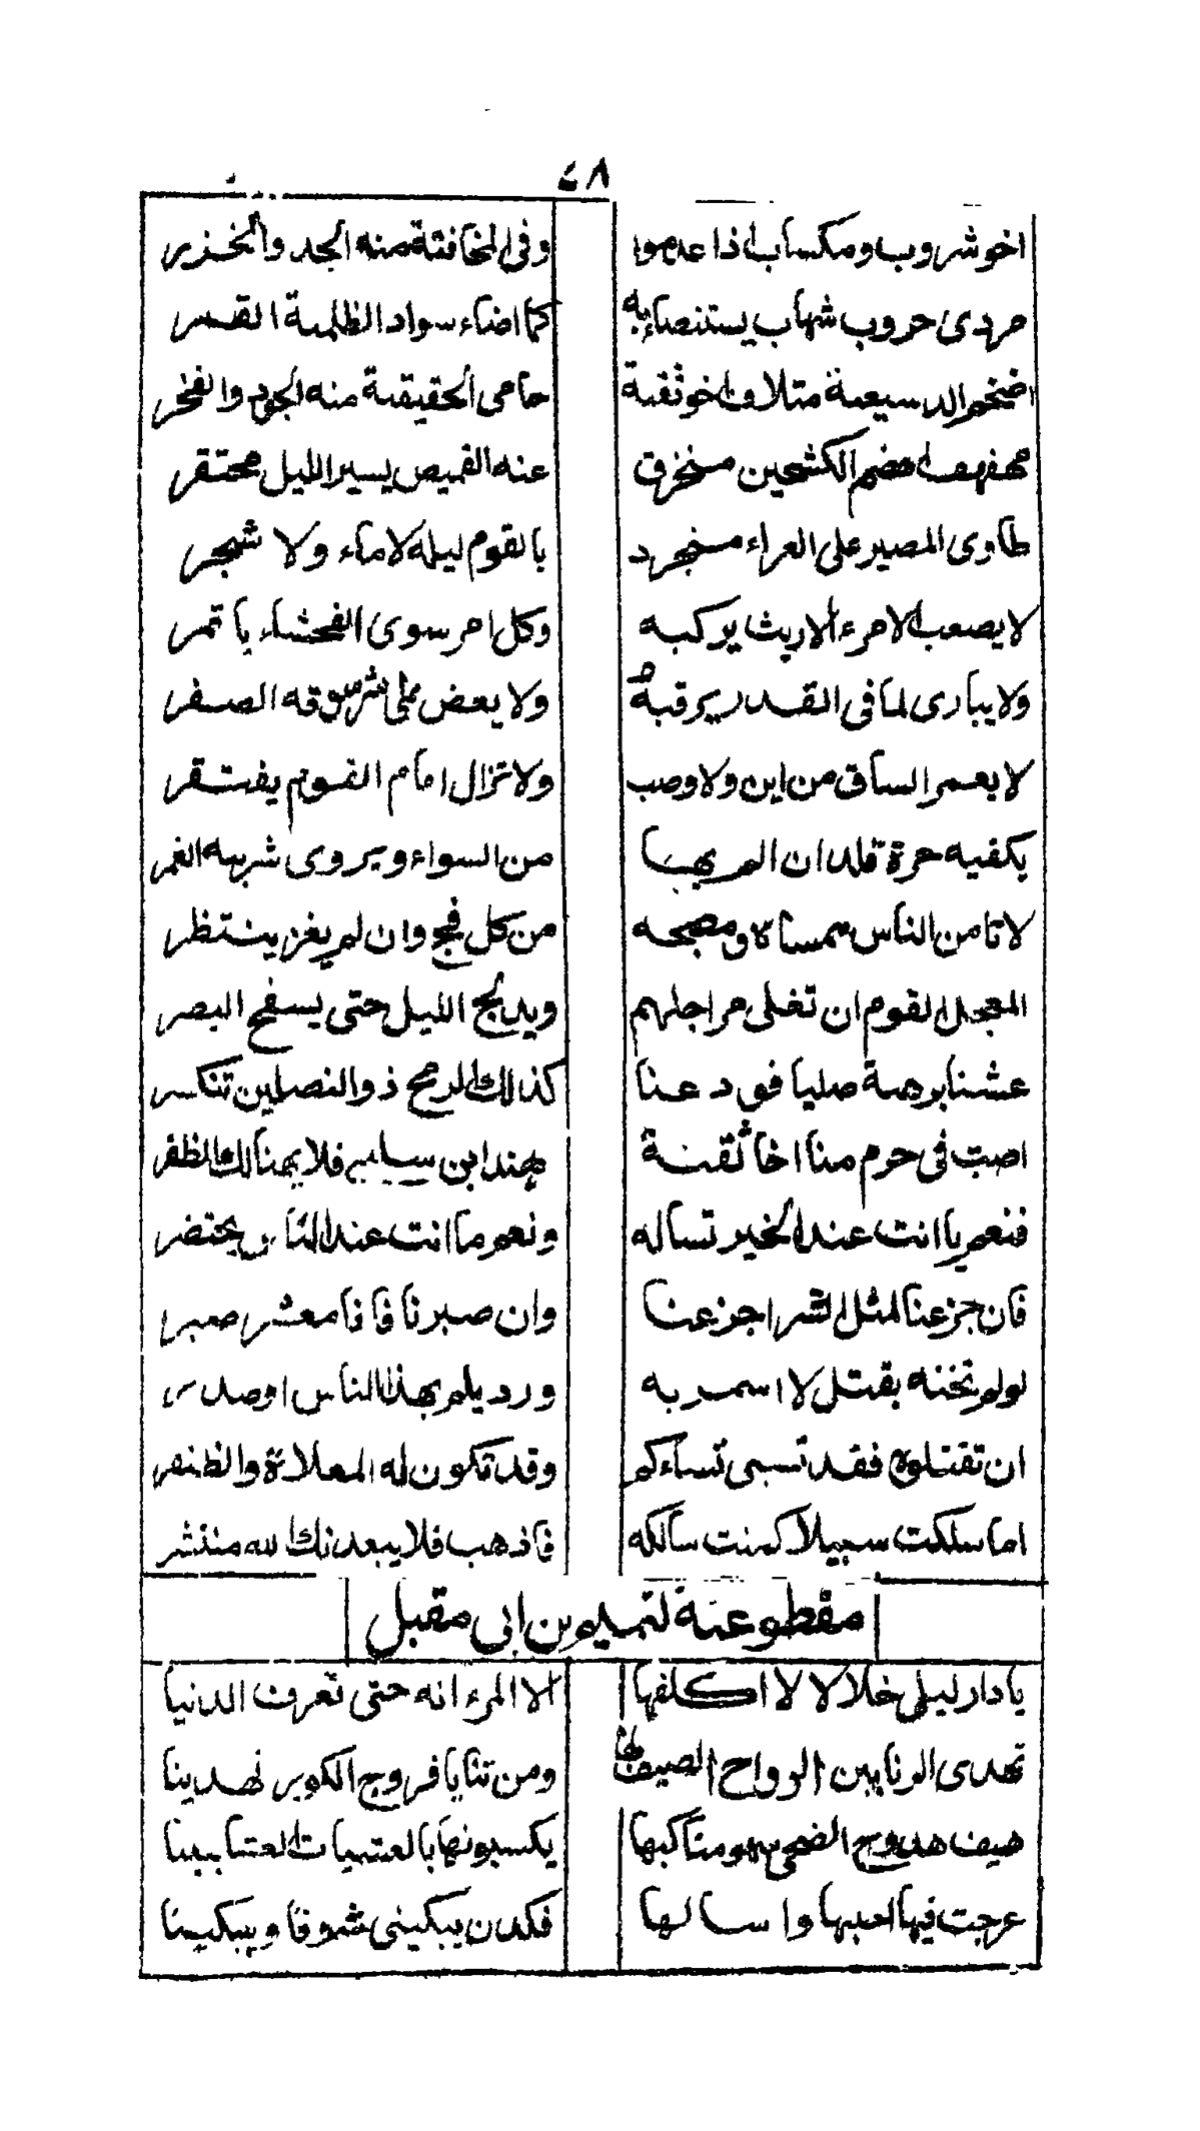 ٤٨
اخو شروب ومكساب اذا عدموا وفى المخافتة منه الجد والحذر
مردى حروب شهاب يستضاء به كما اضاء سواد الظلمة القمر
ضخم الدسيعة متلاف اخو ثقة حامى الحقيقة منه الجود والفخر
مهفهف اهضم الكشحين منخرق عنه القميص يسير الليل محتقر
طاوى المصير على العراء منجرد بالقوم ليله لا ماء ولا شجر
لا يصعب الامر الا ريث يركبه وكل امر سوى الفحشاء ياتمر
ولا يبارى لما فى القدر يرقبه ولا يعض على شرسوقه الصفر
لا يعمر الساق من اين ولا وصب ولا تزال امام القوم يفتقر
يكفيه حزة فلد ان الم بها من السواء ويروى شربه الغمر
لا تامن الناس ممساه ومصبحه من كل فج وان لم يغز ينتظر
المعجل القوم ان تغلى مراجلهم ويدلج الليل حتى يسفح البصر
عشنا برهة صليا فودعنا كذالك الرمح ذو النصلين تنكسر
اصبت فى حرم منا اخا ثقة بهند ابن سلمى فلا يهنا لك الظفر
فنعم يا انت عند الخير تساله ونعم ما انت عند الناس يحتضر
فان جزعنا لمثل الشر اجزعنا وان صبرنا فانا معشر صبر
لو لم تخنه بقتل لا اسمد به ورد يلم بهذا الناس او صدر
ان تقتلوه فقد تسبى نساءكم وقد تكون له المعلاة والظفر
اما سلكت سبيلا كنت سالكه فاذهب فلا يبعدنك الله منتشر
مقطوعة لتميم بن ابى مقبل
يا دار ليلى خلالا لا اكلفها الا المرء انه حتى تعرف الدنيا
تهدى الونا بين الرواح الصيف بها ومن ثنايا فروج الكوير تهدينا
هيف هدوج الضحى سهو مناكبها يكسبونها بالعشيات العثابينا
عرجت فيها احييها واسالها فكدن يبكينى شوقا ويبكينا